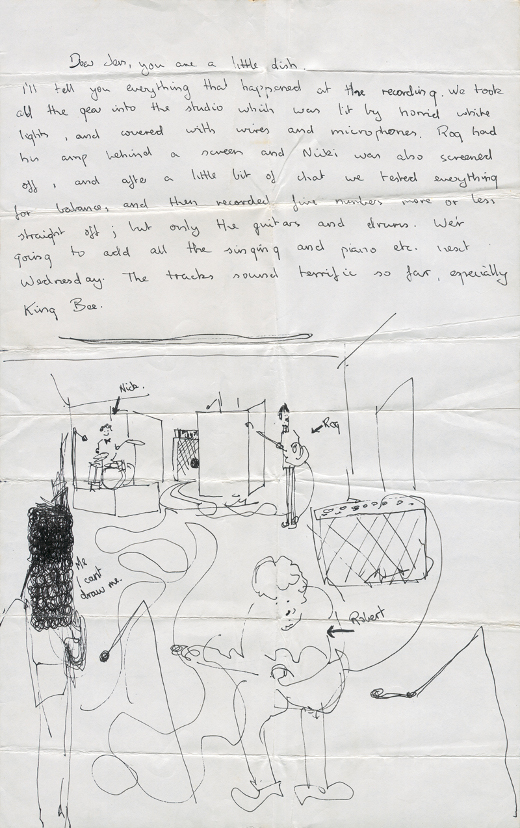 Dear Jen, you are a little dish.
I'll tell you everything that happened at the recording. We took
all the gear into the studio which was lit by horrid white
lights, and covered with wires and microphones. Rog had
his amp behind a screen and Nicki was also screened
off, and after a little bit of chat we tested everything
for balance, and then recorded five numbers more or less
straight off; but only the guitars and drums. We'r
going to add all the singing and piano etc. next
Wednesday. The tracks sound terrific so far, especially
King Bee.
Nick.
Rog
Me
I cant
draw me.
Robert